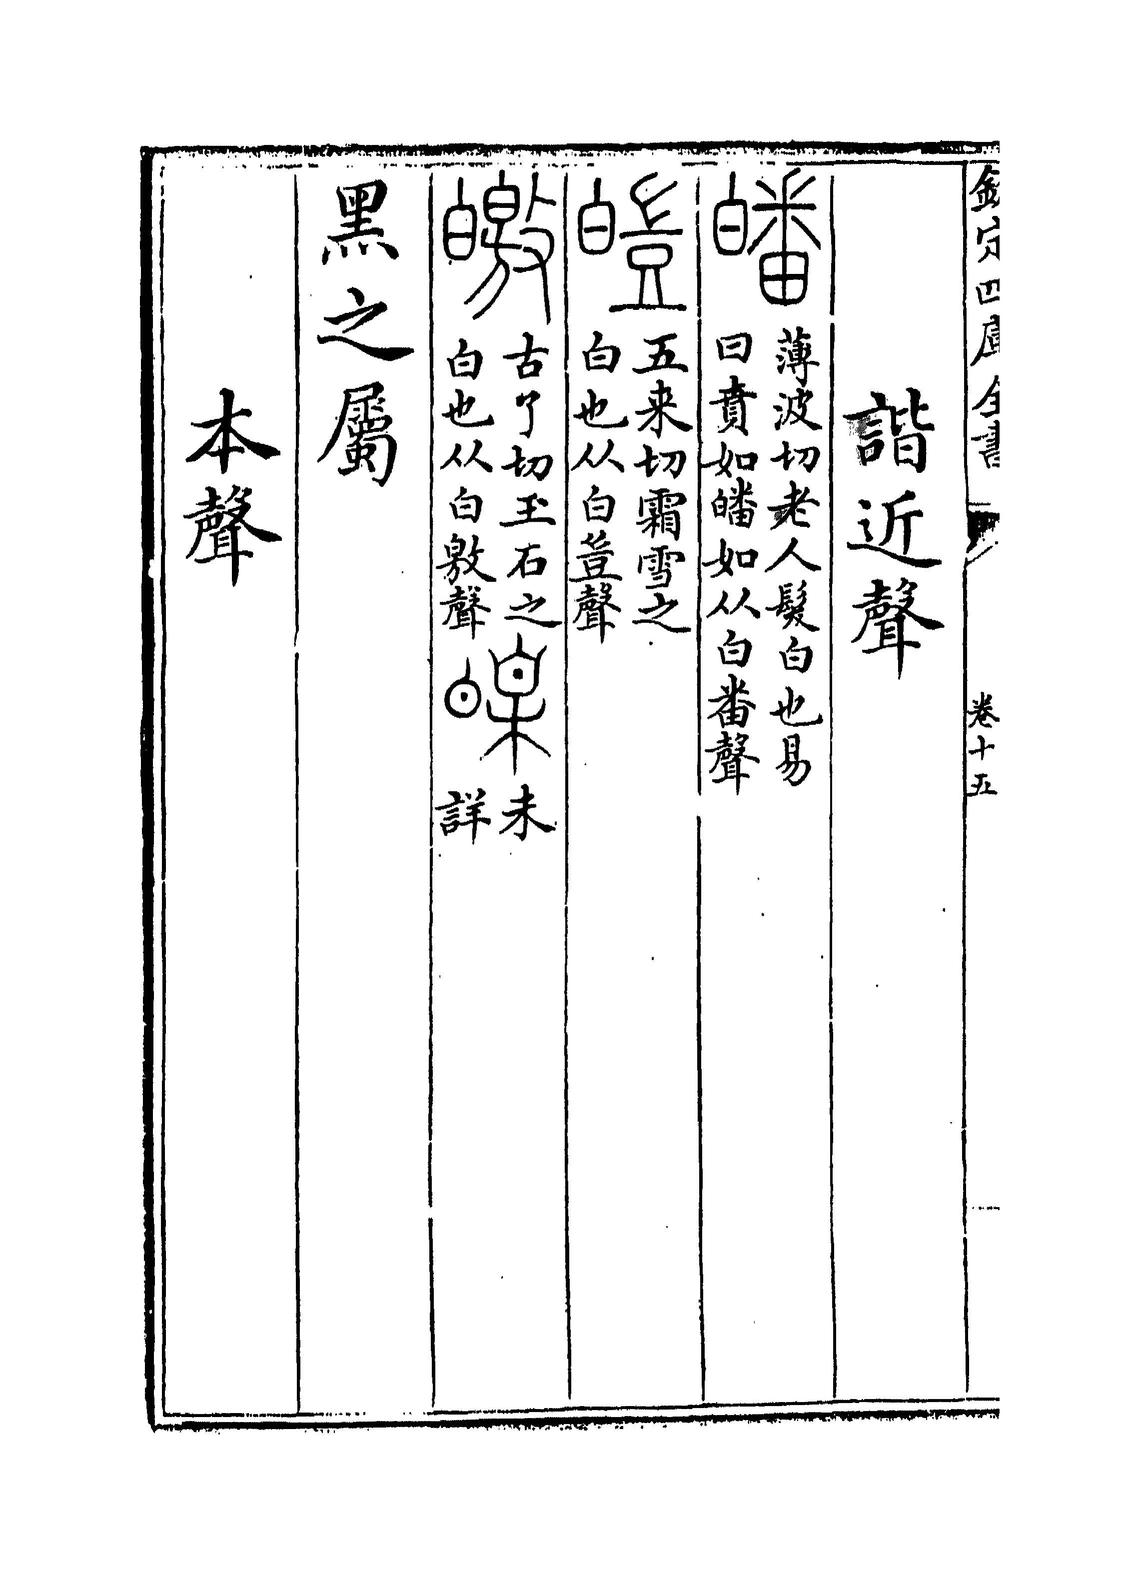 欽定四庫全書
卷十五
諧近聲
皤 薄波切老人髮白也易
曰賁如皤如从白番聲
皚 五来切霜雪之
白也从白豈聲
皦 古了切玉石之
白也从白敫聲
未
詳
黑之屬
本聲